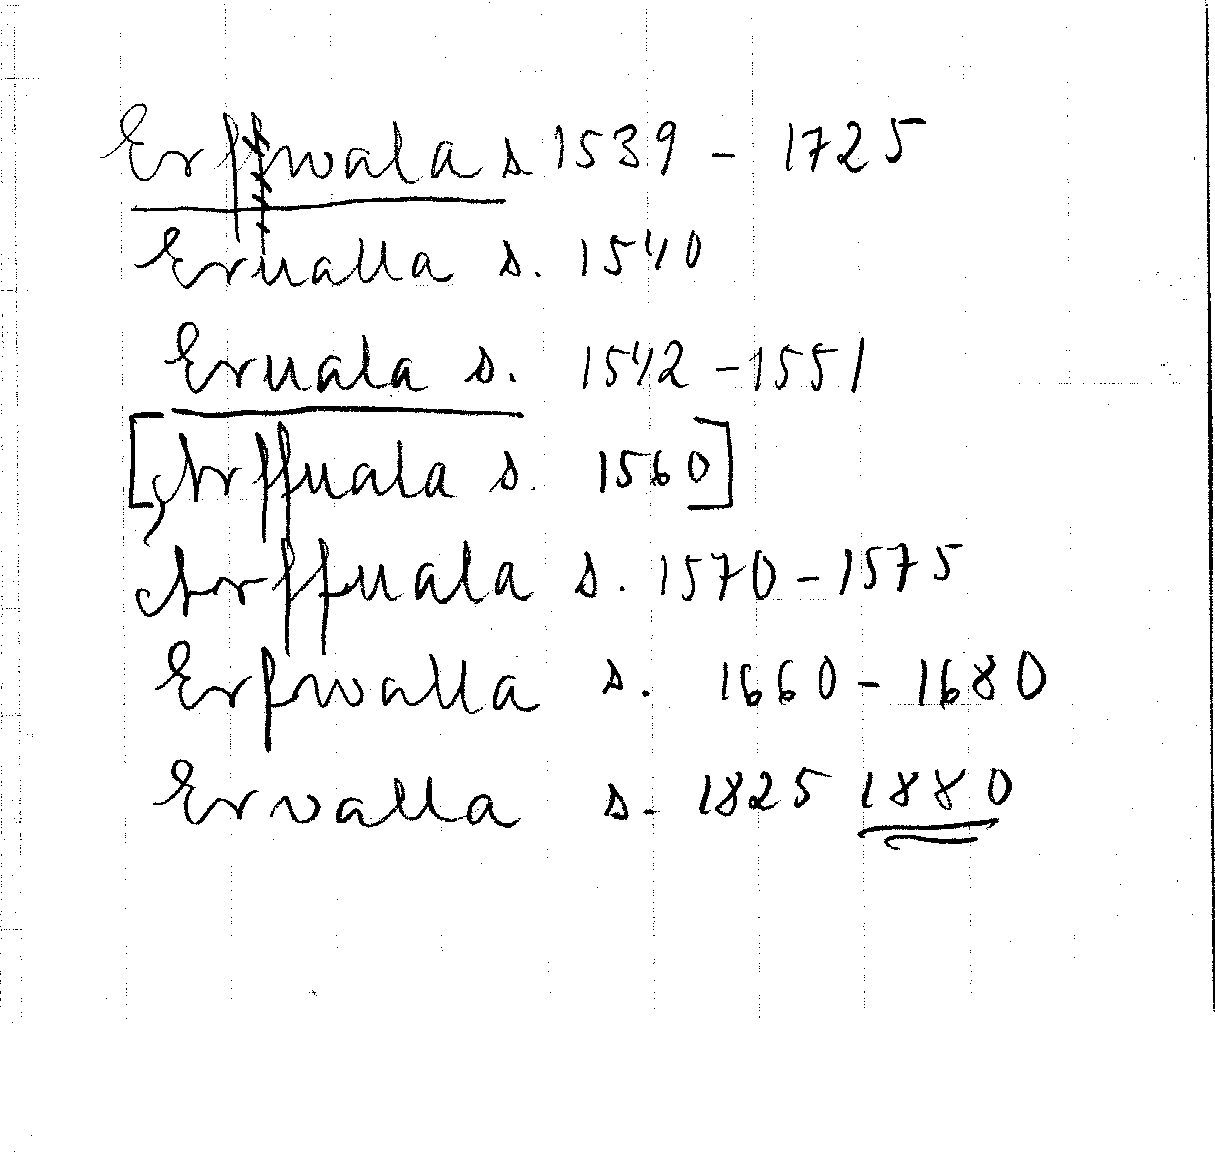 Erfwala s 1539 - 1725
Erualla s. 1540
Eruala s. 1542 - 1551
[Arffuala s. 1560]
Arffuala s. 1570 - 1575
Erfwalla s. 1660 - 1680
Ervalla s. 1825 1880